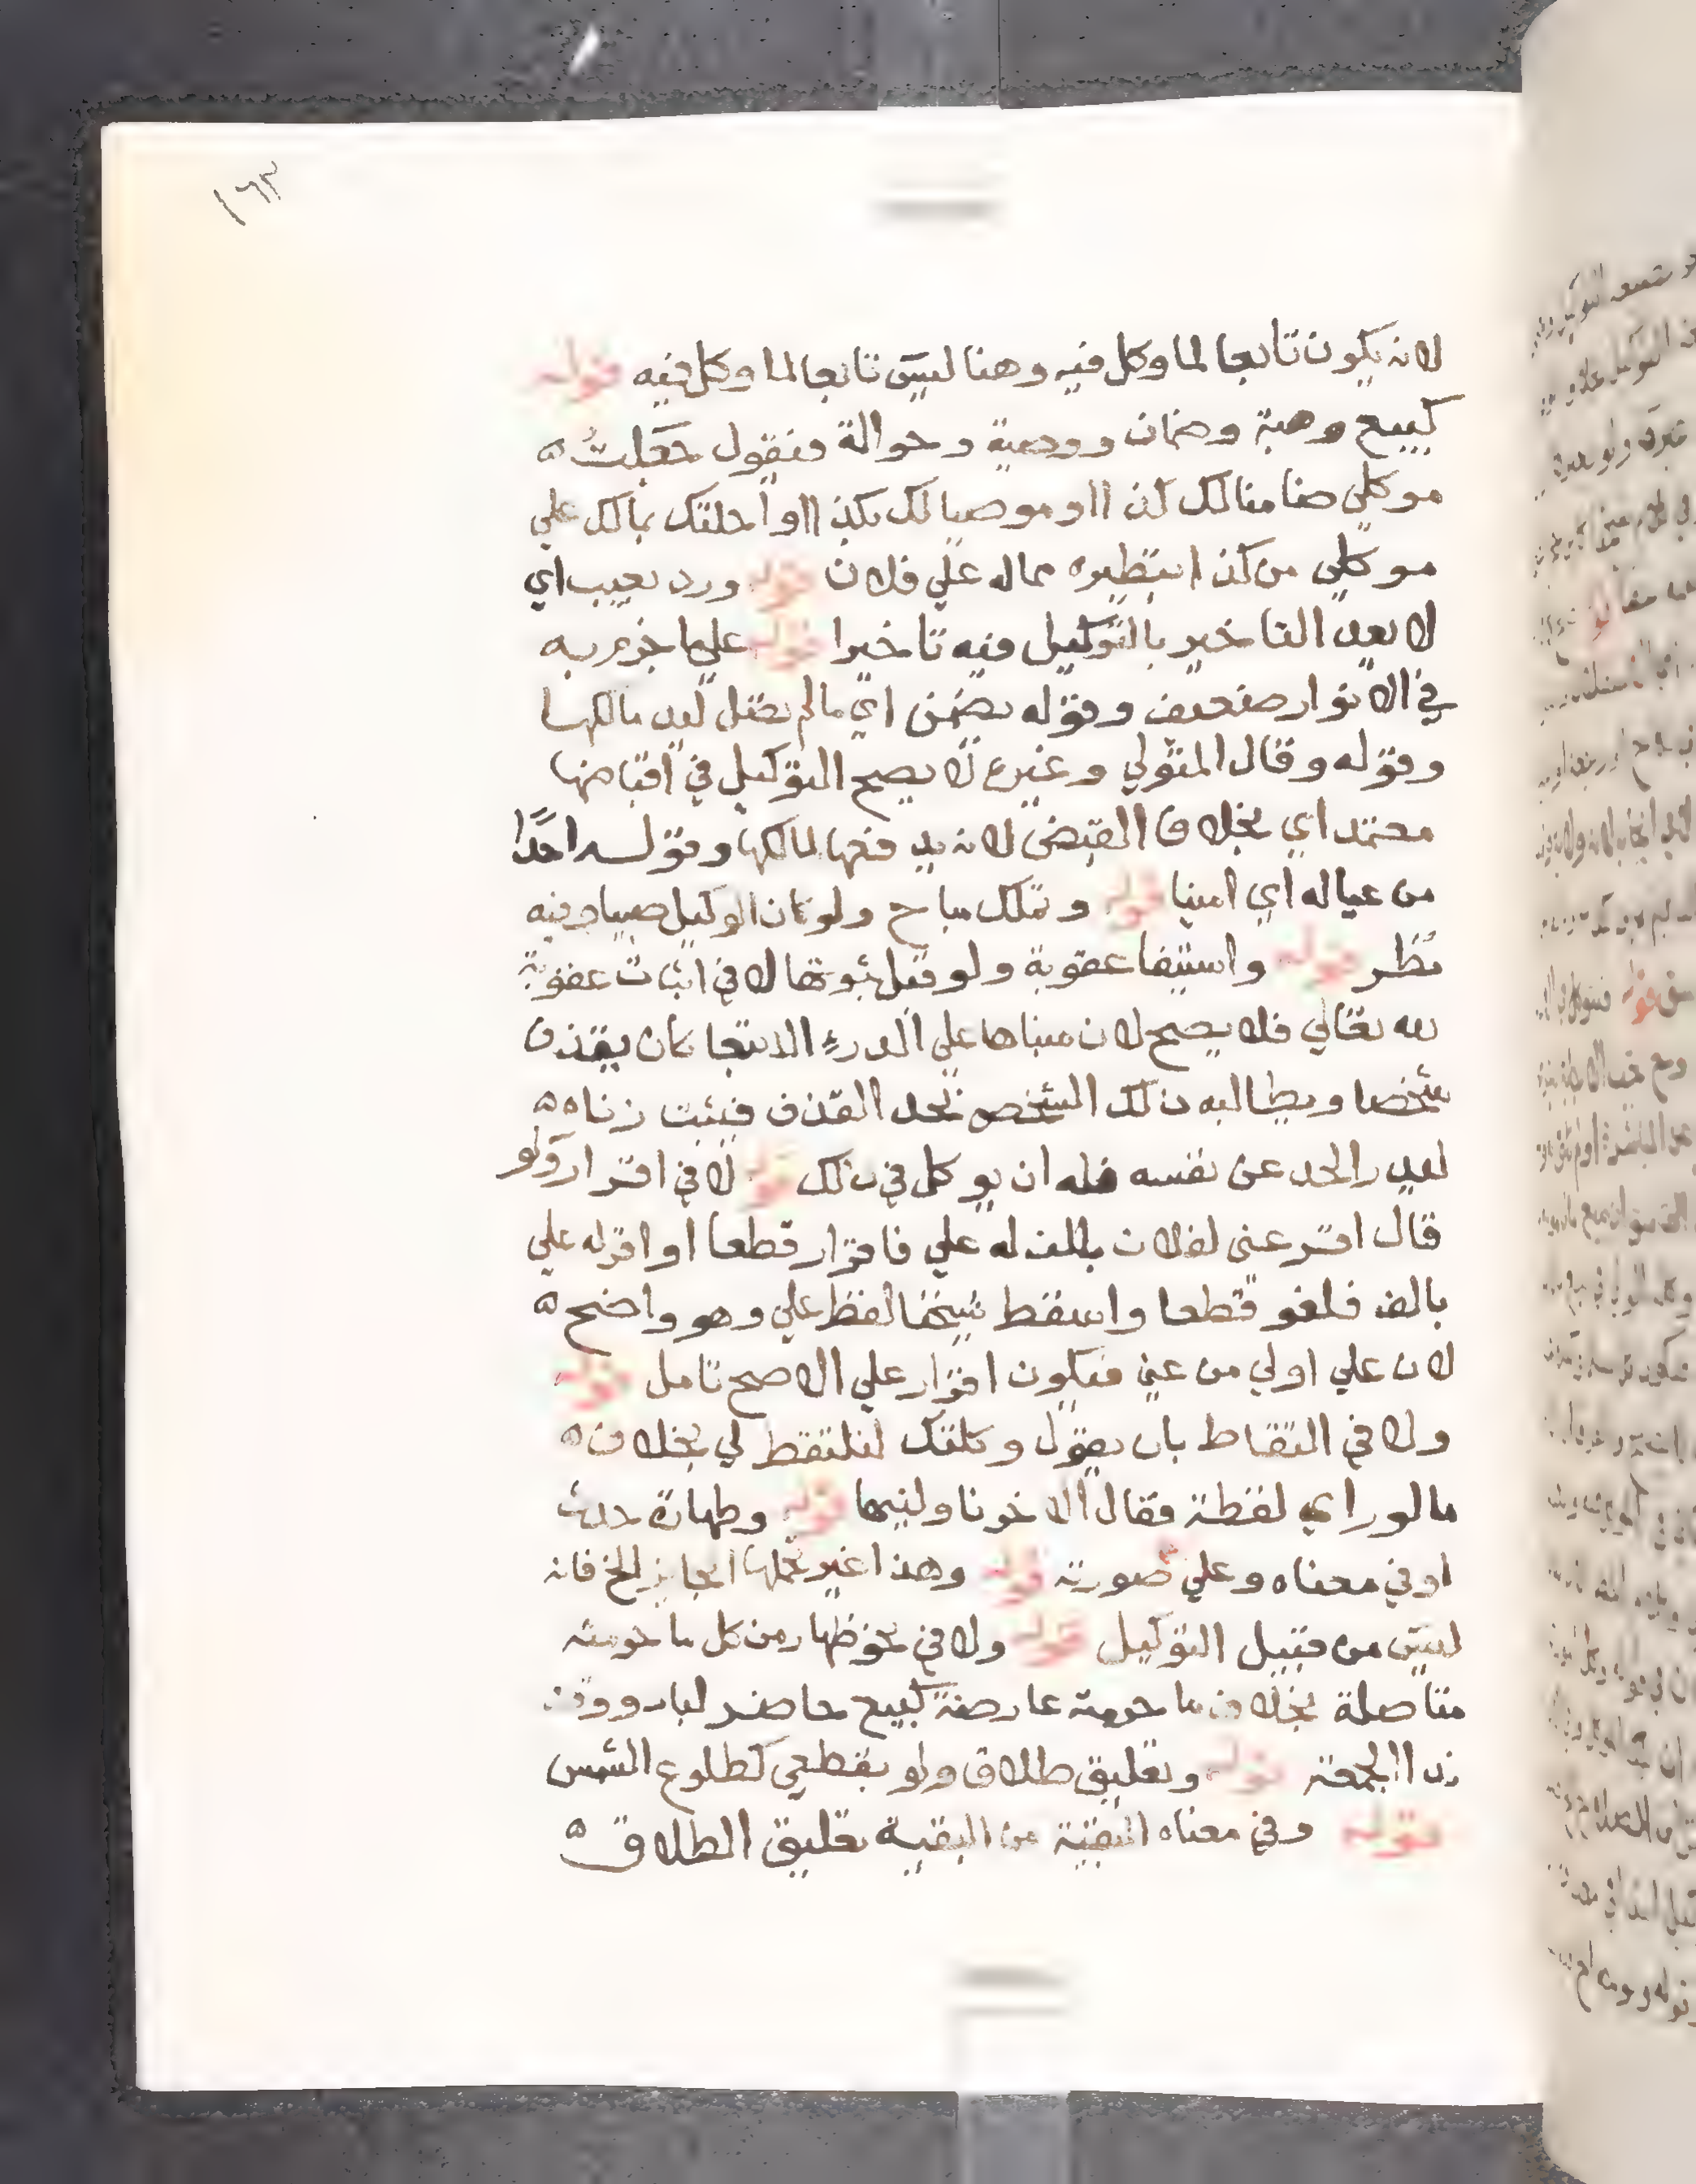 ١٦٣
لانه يكون تابعا لما وكل فيه وهنا ليس تابعا لما وكل فيه قوله
كبيع وهبة وضمان ووصية وحوالة فيقول جعلتُ
موكلي ضامنا لك كذا او موصيا لك بكذا او احلتك بمالك علي
موكلي من كذا بنظيره مما له علي فلان قوله ورد بعيب اي
لا يعد التاخير بالتوكيل فيه تاخيرا قوله علي ما جزم به
في الانوار ضعيف وقوله يضمن اي ما لم تصل ليد مالكها
وقوله وقال المتولي وغيره لا يصح التوكيل في اقباضها
معتمد اي بخلاف القبض لانه يدفعها لمالكها وقوله احدًا
من عياله اي امينا قوله وتملك مباح ولو كان الوكيل صبيا وفيه
نظر قوله واستيفا عقوبة ولو قبل ثبوتها لا في اثبات عقوبة
لله تعالي فلا يصح لان مبناها علي الدرء الا تبعا كان يقذف
شخصا ويطالبه ذلك الشخص بحد القذف فيثبت زناه
ليدرا الحد عن نفسه فله ان يوكل في ذلك قوله لا في اقرار ولو
قال اقر عني لفلان بالف له علي فاقرار قطعا او اقر له علي
بالف فلغو قطعا واسقط شيخنا لفظ علي وهو واضح
لان علي اولي من عني فيكون اقرار علي الاصح تامل قوله
ولا في التقاط بان يقول وكلتك لتلتقط لي بخلاف
ما لو راي لقطة فقال الاخر ناولنيها قوله وطهارة حدث
او في معناه وعلي صورته قوله وهذا غير تحملها الجايز الخ فانه
ليس من قبيل التوكيل قوله ولا في نحو ظهار من كل ما حرمته
متاصلة بخلاف ما حرمته عارضة كبيع حاضر لباد ووقت
ندا الجمعة قوله وتعليق طلاق ولو بقطعي كطلوع الشمس
قوله وفي معناه البقية من البقية تعليق الطلاق